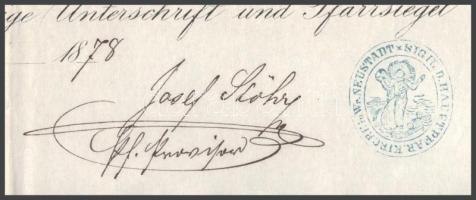 ge Unterschrift und Pfarrsiegel
1878
Josef Stöhr
Pf. Provisor
SIGIL. D. HAUPTPFARRKIRCHE in Wr. NEUSTADT